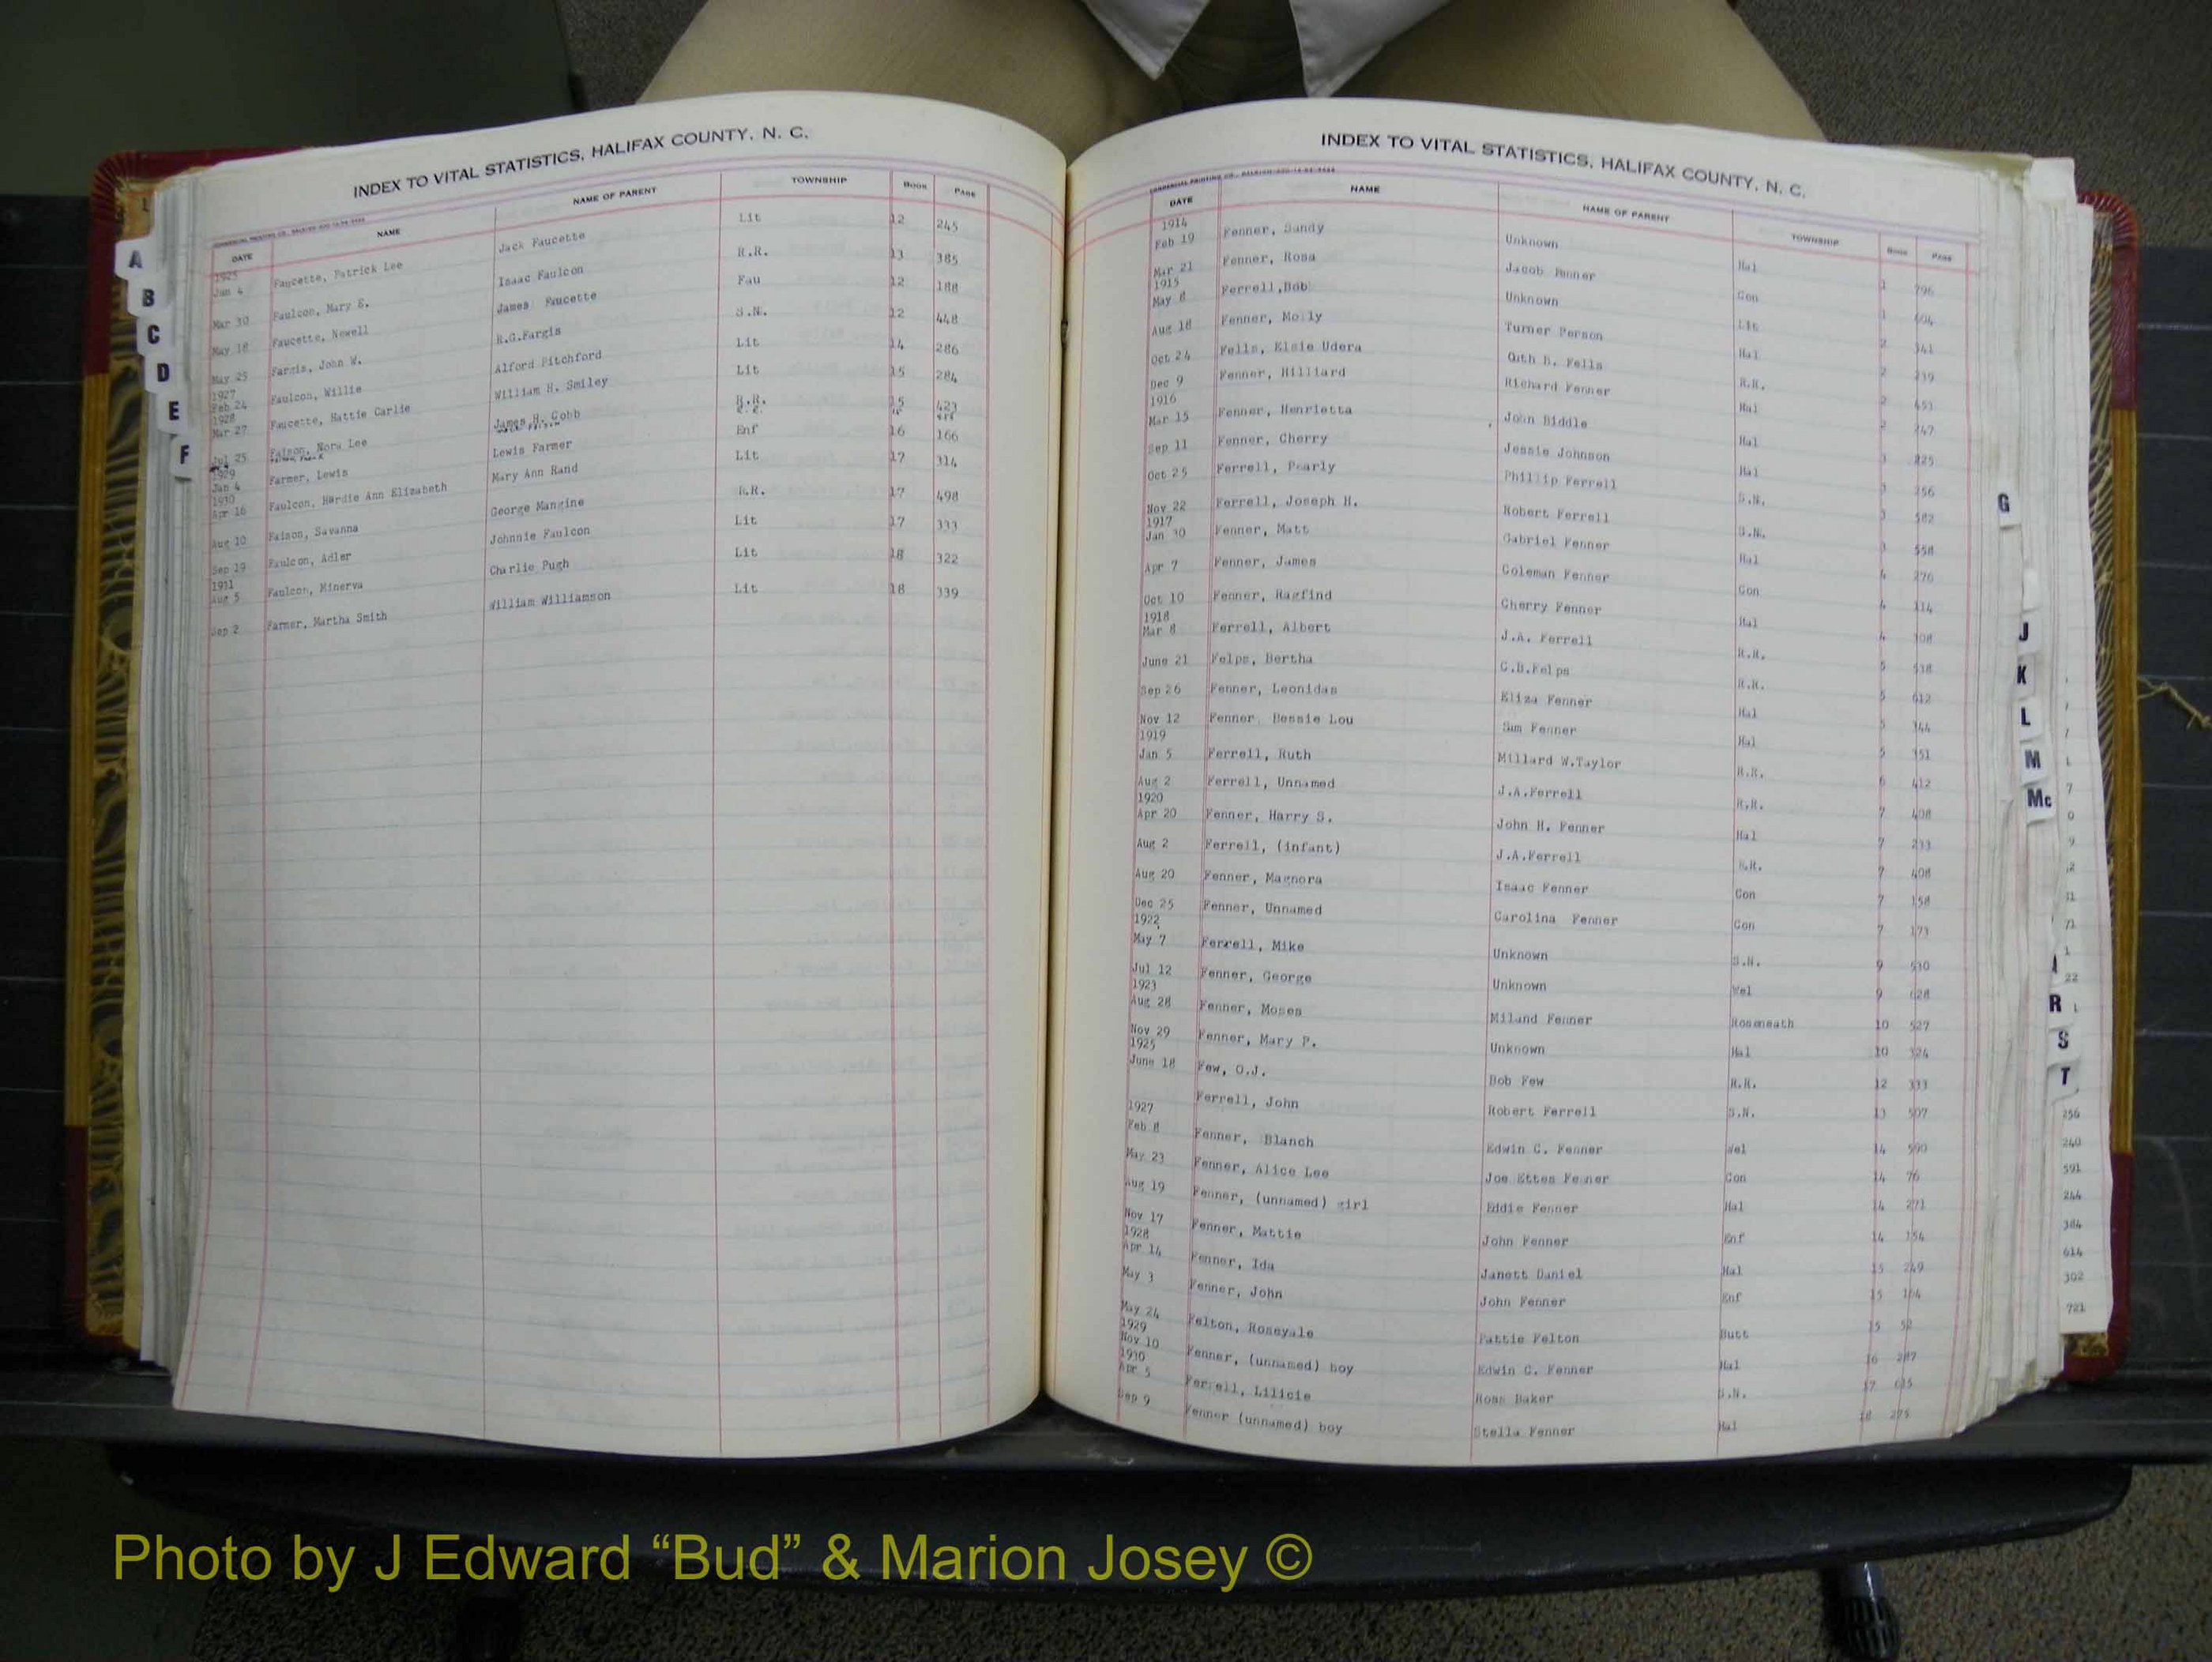 INDEX TO VITAL STATISTICS, HALIFAX COUNTY, N. C.
DATE NAME NAME OF PARENT TOWNSHIP BOOK PAGE
1925
Jan 4 Faucette, Patrick Lee Jack Faucette Lit 12 245
Mar 30 Faulcon, Mary E. Isaac Faulcon R.R. 13 385
May 18 Faucette, Newell James Faucette Fau 12 188
May 25 Fargis, John W. R.G.Fargis S.N. 12 448
1927
Feb 24 Faulcon, Willie Alford Pitchford Lit 14 286
1928
Mar 27 Faucette, Hattie Carlie William H. Smiley Lit 15 284
Jul 25 Faison, Nora Lee James H. Cobb R.R. 15 423
1929
Jan 4 Farmer, Lewis Lewis Farmer Enf 16 166
1930
Apr 16 Faulcon, Hardie Ann Elizabeth Mary Ann Rand Lit 17 314
Aug 10 Faison, Savanna George Mangine R.R. 17 498
Sep 19 Faulcon, Adler Johnnie Faulcon Lit 17 333
1931
Aug 5 Faulcon, Minerva Charlie Pugh Lit 18 322
Sep 2 Farmer, Martha Smith William Williamson Lit 18 339
A
B
C
D
E
F
INDEX TO VITAL STATISTICS, HALIFAX COUNTY, N. C.
DATE NAME NAME OF PARENT TOWNSHIP BOOK PAGE
1914
Feb 19 Fenner, Sandy Unknown Hal 1 296
Mar 21 Fenner, Rosa Jacob Fenner Con 1
1915
May 8 Ferrell,Bob Unknown Lit 2 341
Aug 18 Fenner, Molly Turner Person Hal 2 239
Oct 24 Fells, Elsie Udera B. Fells R.R. 2 451
Dec 9 Fenner, Hilliard Richard Fenner Hal 2 247
1916
Mar 15 Fenner, Henrietta John Biddle Hal 3 225
Sep 11 Fenner, Cherry Jessie Johnson Hal 3 256
Oct 25 Ferrell, Pearly Phillip Ferrell S.N. 3 582
Nov 22 Ferrell, Joseph H. Robert Ferrell S.N. 3 558
1917
Jan 30 Fenner, Matt Gabriel Fenner Hal 4 276
Apr 7 Fenner, James Coleman Fenner Con 4 114
Oct 10 Fenner, Ragfind Cherry Fenner Hal 4 308
1918
Mar 8 Ferrell, Albert J.A. Ferrell R.R. 5 538
June 21 Felps, Bertha C.B.Felps R.R. 5 612
Sep 26 Fenner, Leonidas Eliza Fenner Hal 5 344
Nov 12 Fenner Bessie Lou Sam Fenner Hal 5 351
1919
Jan 5 Ferrell, Ruth Millard W.Taylor R.R. 6 412
Aug 2 Ferrell, Unnamed J.A.Ferrell R.R. 7 408
1920
Apr 20 Fenner, Harry S. John H. Fenner Hal 7 233
Aug 2 Ferrell, (infant) J.A.Ferrell R.R. 7 408
Aug 20 Fenner, Magnora Isaac Fenner Con 7 158
Dec 25 Fenner, Unnamed Carolina Fenner Con 7 173
1922
May 7 Ferrell, Mike Unknown S.N. 9 530
Jul 12 Fenner, George Unknown Wel 9 628
1923
Aug 28 Fenner, Moses Miland Fenner Roseneath 10 527
Nov 29 Fenner, Mary P. Unknown Hal 10 324
1925
June 18 Few, O.J. Bob Few R.R. 12 333
Ferrell, John Robert Ferrell S.N. 13 507
1927
Feb 8 Fenner, Blanch Edwin C. Fenner Wel 14 590
May 23 Fenner, Alice Lee Joe Ettes Fenner Con 14 76
Aug 19 Fenner, (unnamed) girl Eddie Fenner Hal 14 273
Nov 17 Fenner, Mattie John Fenner Enf 14 154
1928
Apr 14 Fenner, Ida Janett Daniel Hal 15 249
May 3 Fenner, John John Fenner Enf 15 164
May 24 Felton, Roseyale Pattie Felton Butt 15 52
1929
Nov 10 Fenner, (unnamed) boy Edwin C. Fenner Hal 16 287
1930
Apr 5 Ferrell, Lilicie Ross Baker S.N. 17 635
Sep 9 Fenner (unnamed) boy Stella Fenner Hal 18 275
G
J
K
L
M
Mc
R
S
T
256
240
591
244
384
614
302
721
Photo by J Edward “Bud” & Marion Josey ©